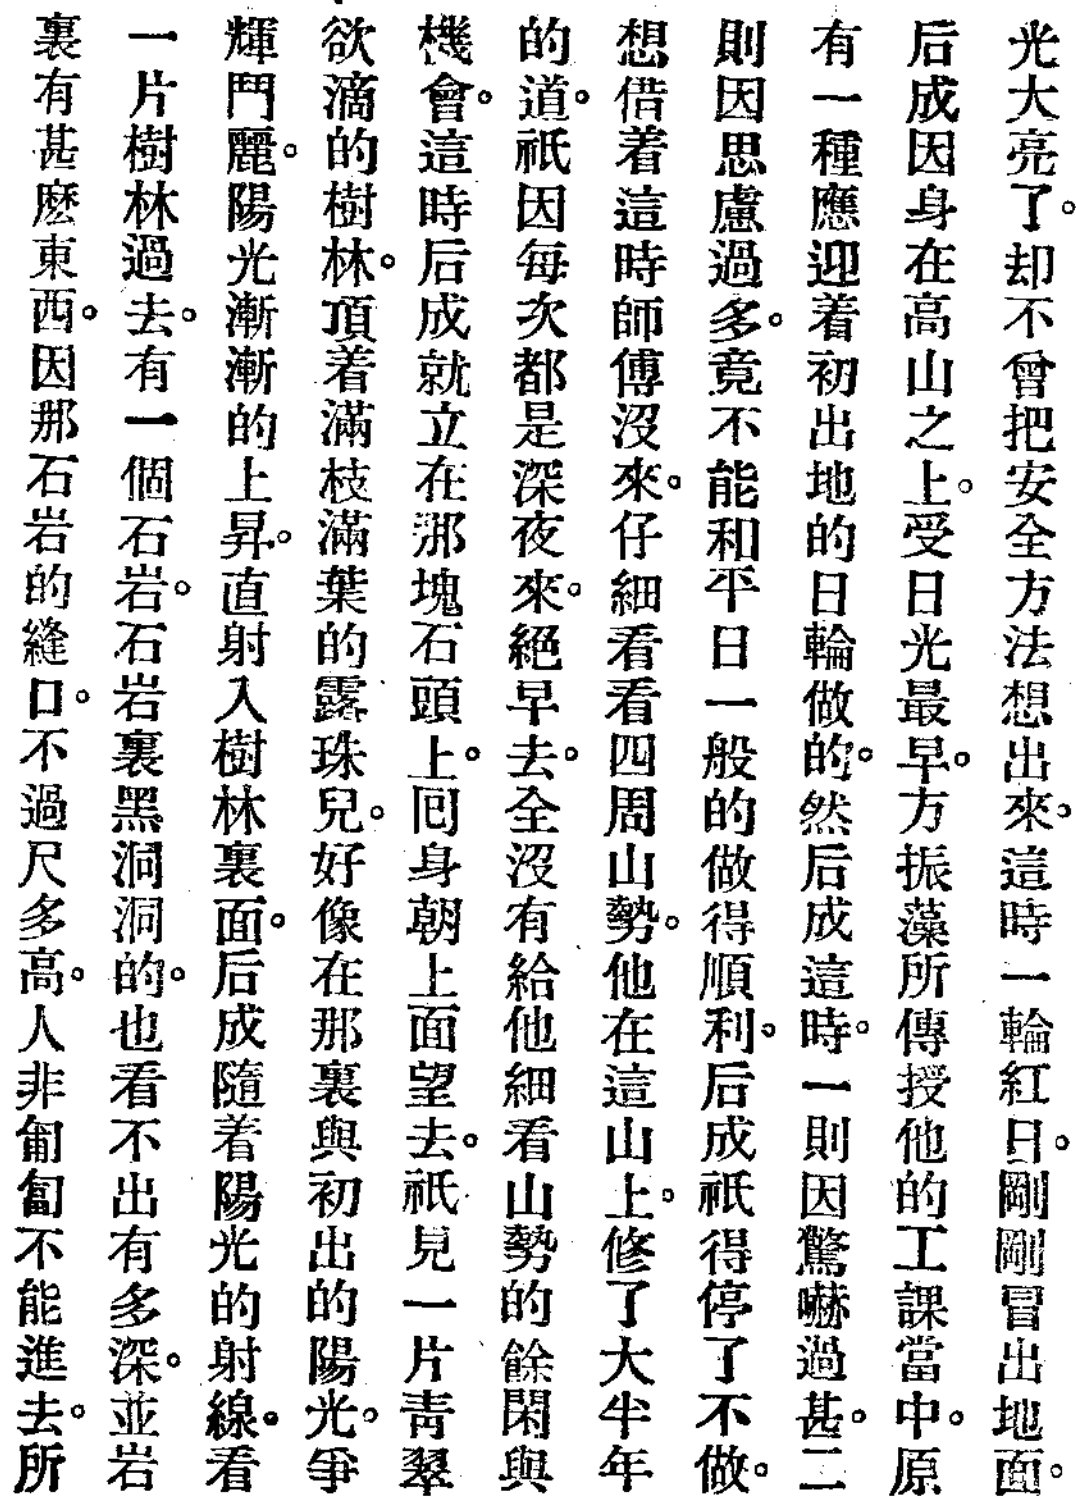 光大亮了。却不曾把安全方法想出來。這時一輪紅日。剛剛冒出地面。
后成因身在高山之上。受日光最早。方振藻所傳授他的工課當中。原
有一種應迎着初出地的日輪做的。然后成這時。一則因驚嚇過甚。二
則因思慮過多。竟不能和平日一般的做得順利。后成祇得停了不做。
想借着這時師傅沒來。仔細看看四周山勢。他在這山上。修了大半年
的道。祇因每次都是深夜來。絕早去。全沒有給他細看山勢的餘閑與
機會。這時后成就立在那塊石頭上。囘身朝上面望去。祇見一片青翠
欲滴的樹林。頂着滿枝滿葉的露珠兒。好像在那裏與初出的陽光。爭
輝鬥麗。陽光漸漸的上昇。直射入樹林裏面。后成隨着陽光的射線。看
一片樹林過去。有一個石岩。石岩裏黑洞洞的。也看不出有多深。並岩
裏有甚麽東西。因那石岩的縫口。不過尺多高。人非匍匐不能進去。所